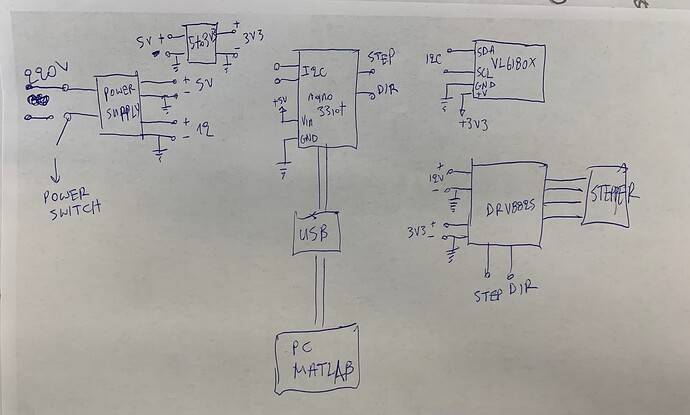 220V
POWER
SUPPLY
+ 5V
-
+ 12
-
POWER
SWITCH
5V +
-
5to3V3
+
3V3
-
I2C
nano
33iot
+5V
Vin
GND
STEP
DIR
USB
PC
MATLAB
I2C
SDA
SCL
GND
+V
VL6180X
+3V3
+
12V
-
3V3 +
-
DRV8825
STEPPER
STEP DIR